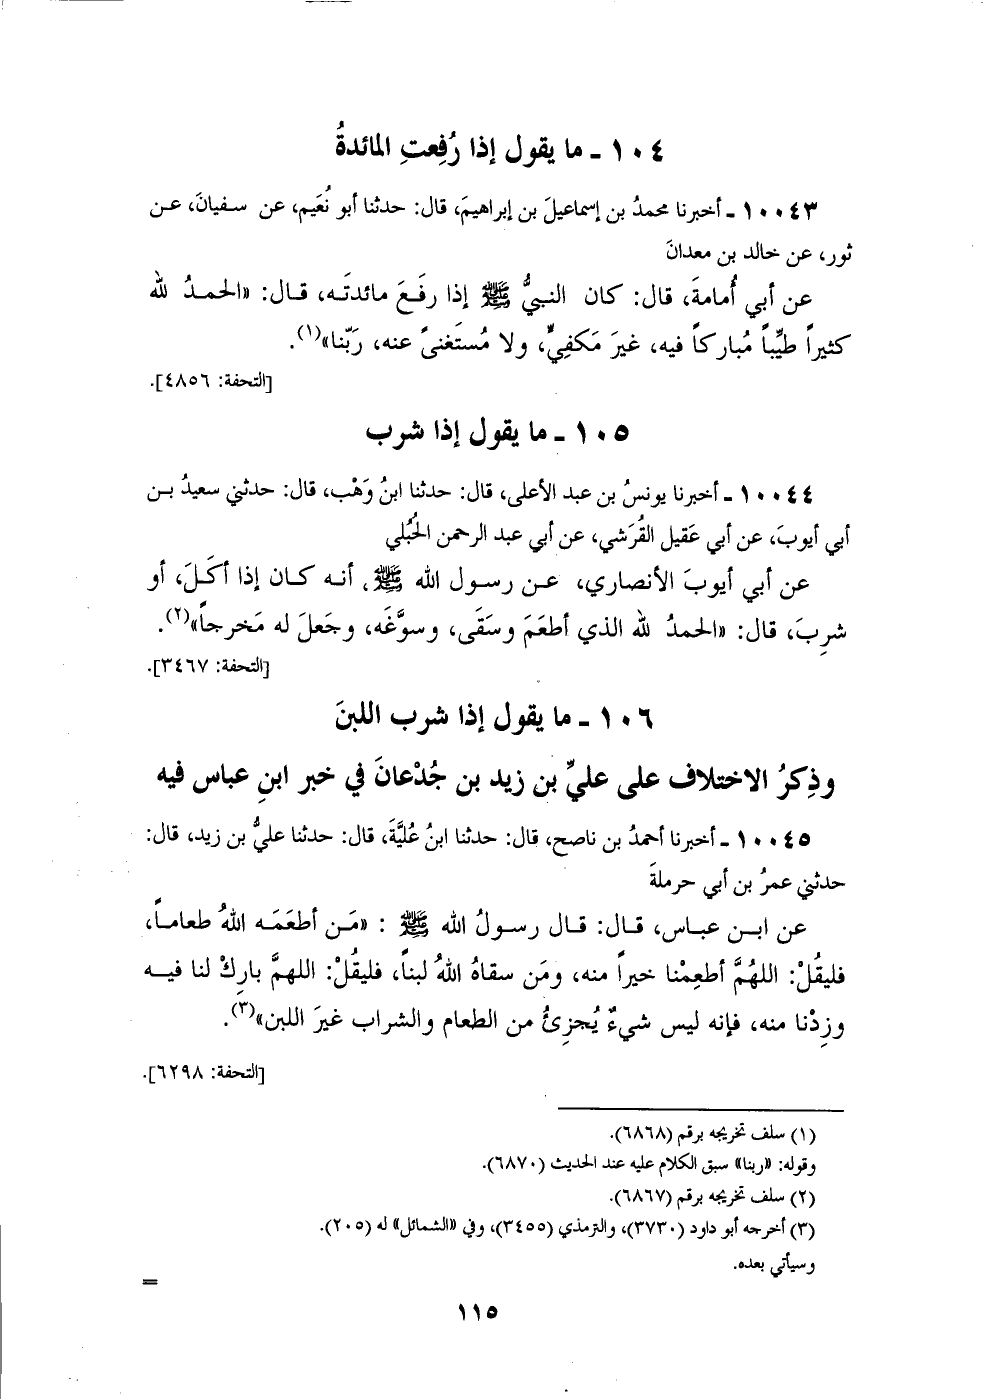 ١٠٤ ـ ما يقول إذا رُفِعتِ المائدةُ
١٠٠٤٣ ـ أخبرنا محمدُ بن إسماعيلَ بن إبراهيمَ، قال: حدثنا أبو نُعَيم، عن سفيانَ، عن
ثور، عن خالد بن معدانَ
عن أبي أُمامةَ، قال: كان النبيُّ ﷺ إذا رفَعَ مائدتَه، قال: «الحمدُ لله
كثيراً طيِّباً مُباركاً فيه، غيرَ مَكفِيٍّ، ولا مُستَغنىً عنه، رَبّنا»(١).
[التحفة: ٤٨٥٦].
١٠٥ ـ ما يقول إذا شرب
١٠٠٤٤ ـ أخبرنا يونسُ بن عبد الأعلى، قال: حدثنا ابنُ وَهْب، قال: حدثني سعيدُ بن
أبي أيوبَ، عن أبي عَقيل القُرَشي، عن أبي عبد الرحمن الحُبُلي
عن أبي أيوبَ الأنصاري، عن رسول الله ﷺ، أنه كان إذا أكَلَ، أو
شرِبَ، قال: «الحمدُ لله الذي أطعَمَ وسَقَى، وسوَّغَه، وجَعلَ له مَخرجاً»(٢).
[التحفة: ٣٤٦٧].
١٠٦ ـ ما يقول إذا شرب اللبنَ
وذِكرُ الاختلاف على عليِّ بن زيد بن جُدْعانَ في خبر ابنِ عباس فيه
١٠٠٤٥ ـ أخبرنا أحمدُ بن ناصح، قال: حدثنا ابنُ عُليَّةَ، قال: حدثنا عليُّ بن زيد، قال:
حدثني عمرُ بن أبي حرملةَ
عن ابن عباس، قال: قال رسولُ الله ﷺ : «مَن أطعَمَه اللهُ طعاماً،
فليقُلْ: اللهُمَّ أطعِمْنا خيراً منه، ومَن سقاهُ اللهُ لبناً، فليقُلْ: اللهمَّ بارِكْ لنا فيه
وزِدْنا منه، فإنه ليس شيءٌ يُجزِئُ من الطعام والشراب غيرَ اللبن»(٣).
[التحفة: ٦٢٩٨].
(١) سلف تخريجه برقم (٦٨٦٨).
وقوله: «ربنا» سبق الكلام عليه عند الحديث (٦٨٧٠).
(٢) سلف تخريجه برقم (٦٨٦٧).
(٣) أخرجه أبو داود (٣٧٣٠)، والترمذي (٣٤٥٥)، وفي «الشمائل» له (٢٠٥).
وسيأتي بعده.
=
١١٥